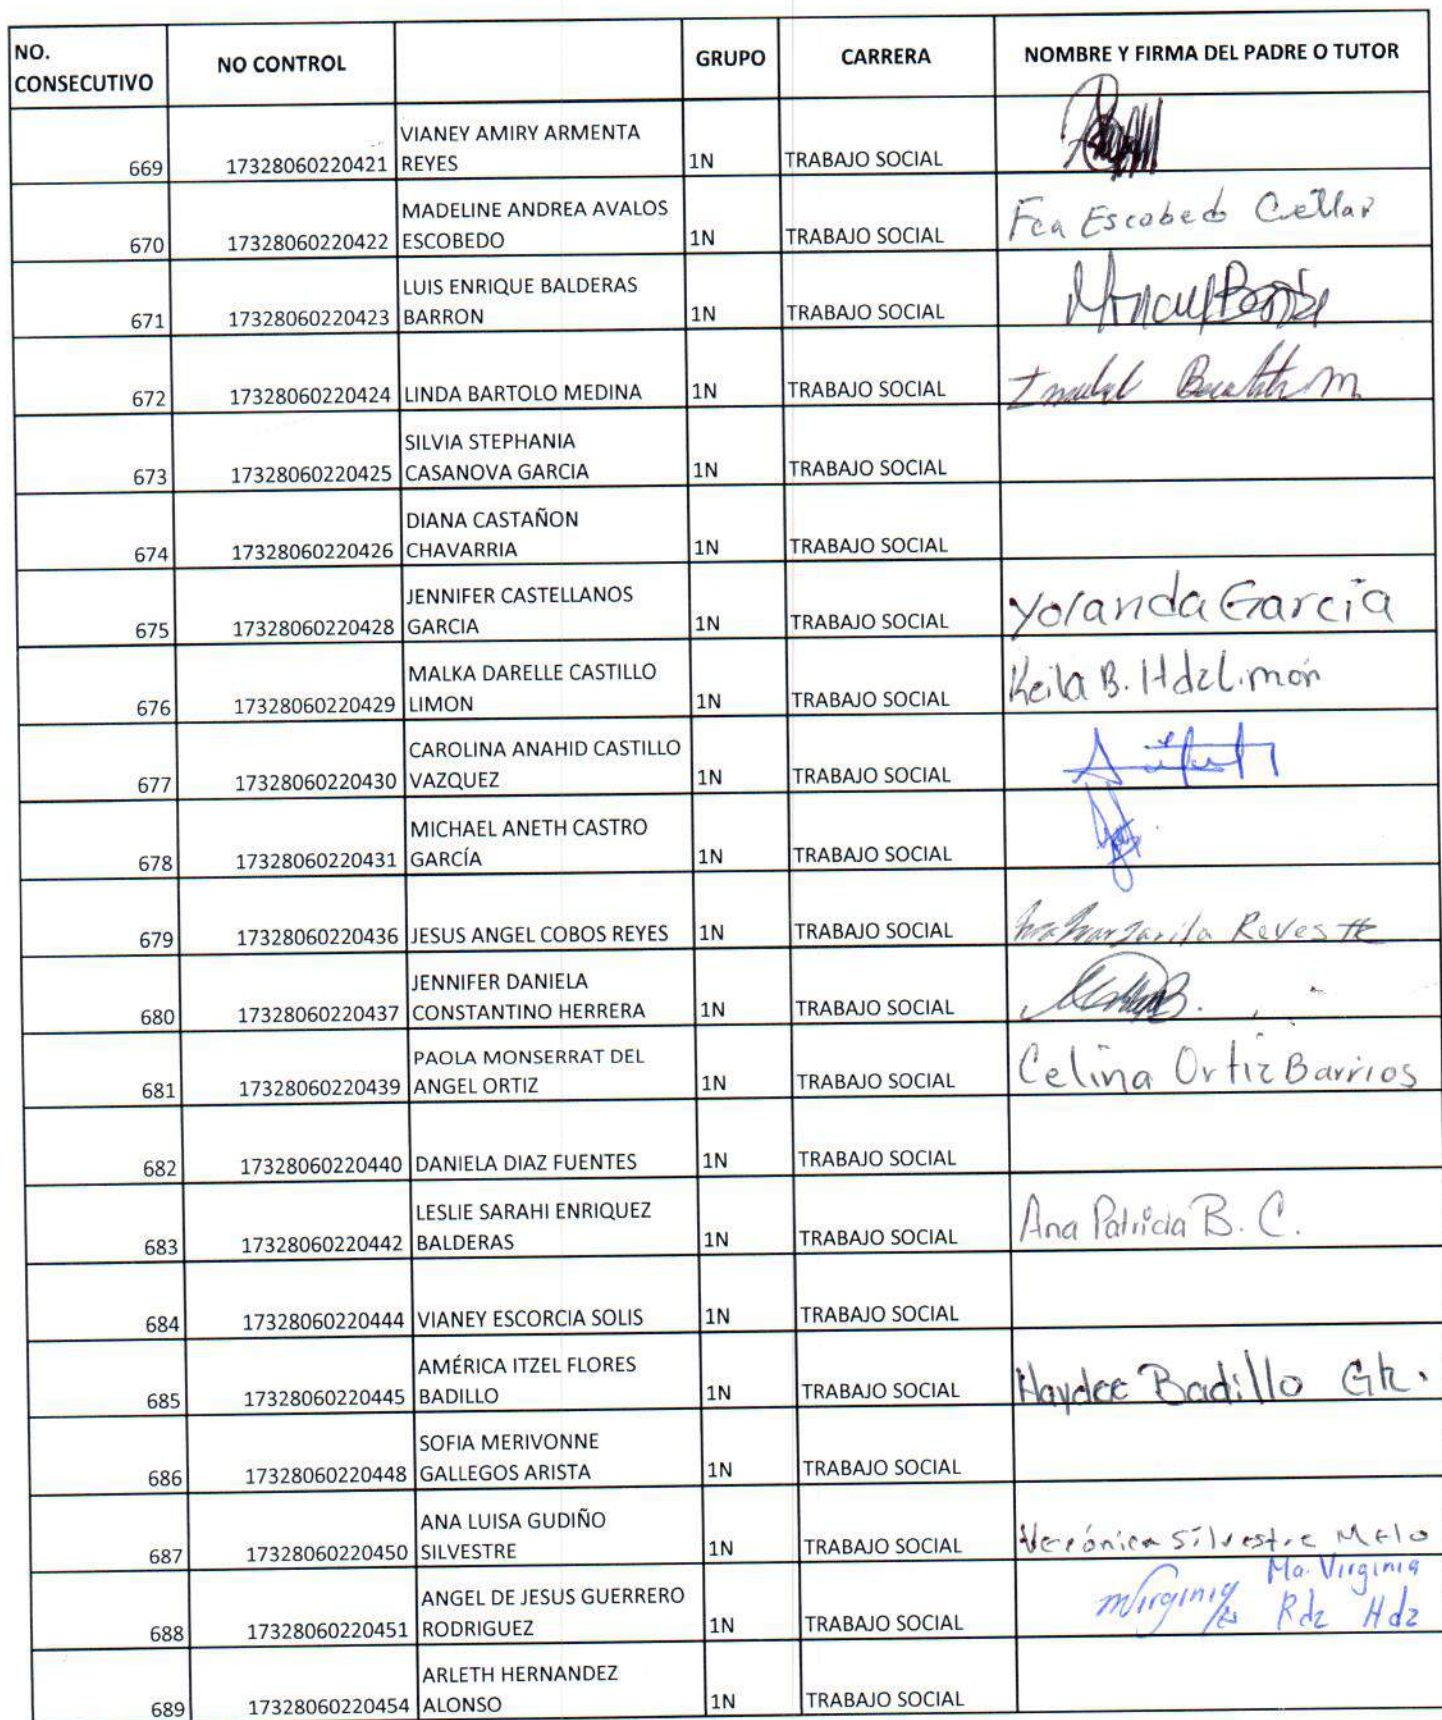 NO. CONSECUTIVO NO CONTROL GRUPO CARRERA NOMBRE Y FIRMA DEL PADRE O TUTOR
669 17328060220421 VIANEY AMIRY ARMENTA REYES 1N TRABAJO SOCIAL
670 17328060220422 MADELINE ANDREA AVALOS ESCOBEDO 1N TRABAJO SOCIAL Fca Escobedo Cuellar
671 17328060220423 LUIS ENRIQUE BALDERAS BARRON 1N TRABAJO SOCIAL
672 17328060220424 LINDA BARTOLO MEDINA 1N TRABAJO SOCIAL
673 17328060220425 SILVIA STEPHANIA CASANOVA GARCIA 1N TRABAJO SOCIAL
674 17328060220426 DIANA CASTAÑON CHAVARRIA 1N TRABAJO SOCIAL
675 17328060220428 JENNIFER CASTELLANOS GARCIA 1N TRABAJO SOCIAL Yolanda García
676 17328060220429 MALKA DARELLE CASTILLO LIMON 1N TRABAJO SOCIAL Keila B. Hdz Limón
677 17328060220430 CAROLINA ANAHID CASTILLO VAZQUEZ 1N TRABAJO SOCIAL
678 17328060220431 MICHAEL ANETH CASTRO GARCÍA 1N TRABAJO SOCIAL
679 17328060220436 JESUS ANGEL COBOS REYES 1N TRABAJO SOCIAL Reyes
680 17328060220437 JENNIFER DANIELA CONSTANTINO HERRERA 1N TRABAJO SOCIAL
681 17328060220439 PAOLA MONSERRAT DEL ANGEL ORTIZ 1N TRABAJO SOCIAL Celina Ortiz Barrios
682 17328060220440 DANIELA DIAZ FUENTES 1N TRABAJO SOCIAL
683 17328060220442 LESLIE SARAHI ENRIQUEZ BALDERAS 1N TRABAJO SOCIAL Ana Patricia B. C.
684 17328060220444 VIANEY ESCORCIA SOLIS 1N TRABAJO SOCIAL
685 17328060220445 AMÉRICA ITZEL FLORES BADILLO 1N TRABAJO SOCIAL Haydee Badillo
686 17328060220448 SOFIA MERIVONNE GALLEGOS ARISTA 1N TRABAJO SOCIAL
687 17328060220450 ANA LUISA GUDIÑO SILVESTRE 1N TRABAJO SOCIAL Verónica Silvestre Melo
688 17328060220451 ANGEL DE JESUS GUERRERO RODRIGUEZ 1N TRABAJO SOCIAL Ma. Virginia Rdz Hdz
689 17328060220454 ARLETH HERNANDEZ ALONSO 1N TRABAJO SOCIAL